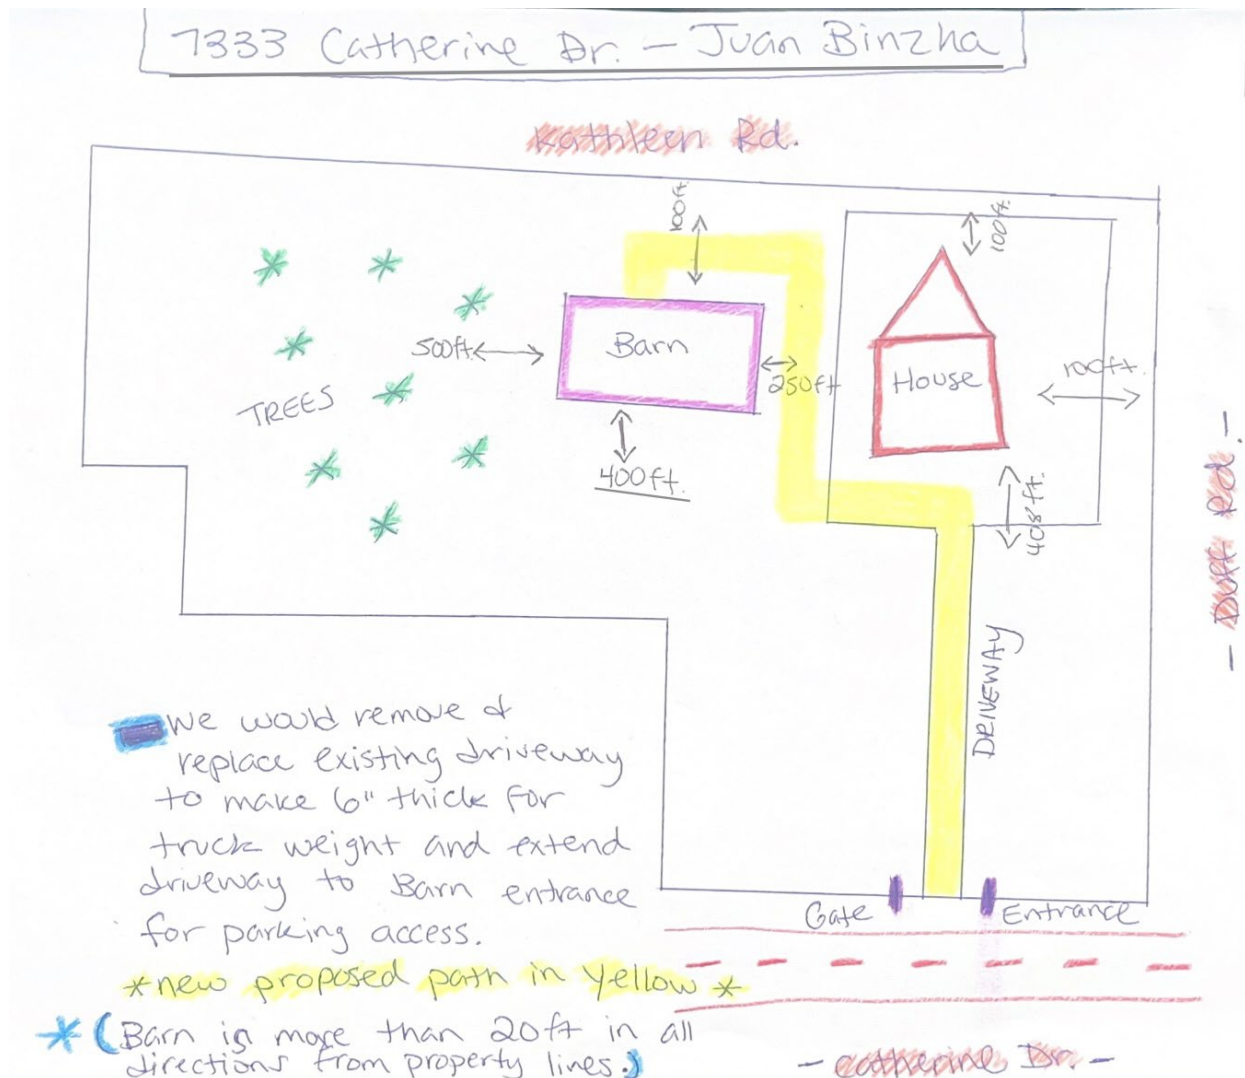 7333 Catherine Dr. - Juan Binzha
Kathleen Rd.
100ft.
100ft.
500ft.
Barn
250ft
House
100ft.
TREES
400ft.
408ft.
- Duff Rd. -
DRIVEWAY
We would remove &
replace existing driveway
to make 6" thick for
truck weight and extend
driveway to Barn entrance
for parking access.
Gate
Entrance
*new proposed path in yellow *
* (Barn is more than 20ft in all
directions from property lines.)
- Catherine Dr. -